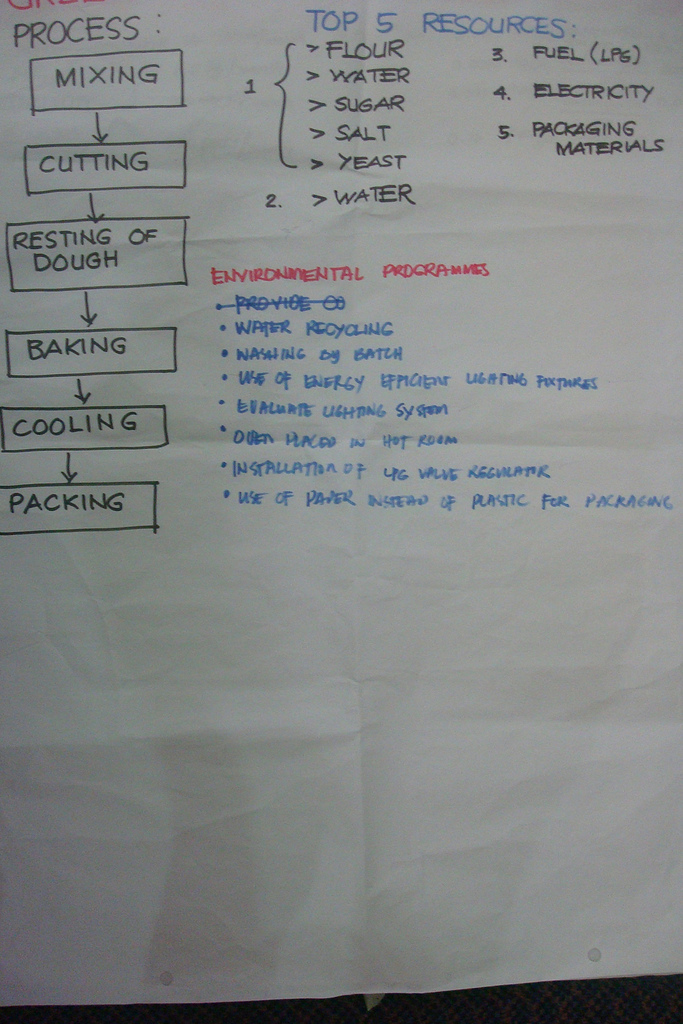 PROCESS:
MIXING
CUTTING
RESTING OF
DOUGH
BAKING
COOLING
PACKING
TOP 5 RESOURCES:
1
> FLOUR
> WATER
> SUGAR
> SALT
> YEAST
2. > WATER
3. FUEL (LPG)
4. ELECTRICITY
5. PACKAGING
MATERIALS
ENVIRONMENTAL PROGRAMMES
• PROVIDE
• WATER RECYCLING
• WASHING BY BATCH
• USE OF ENERGY EFFICIENT LIGHTING FIXTURES
• EVALUATE LIGHTING SYSTEM
• OVEN PLACED IN HOT ROOM
• INSTALLATION OF LPG VALVE REGULATOR
• USE OF PAPER INSTEAD OF PLASTIC FOR PACKAGING